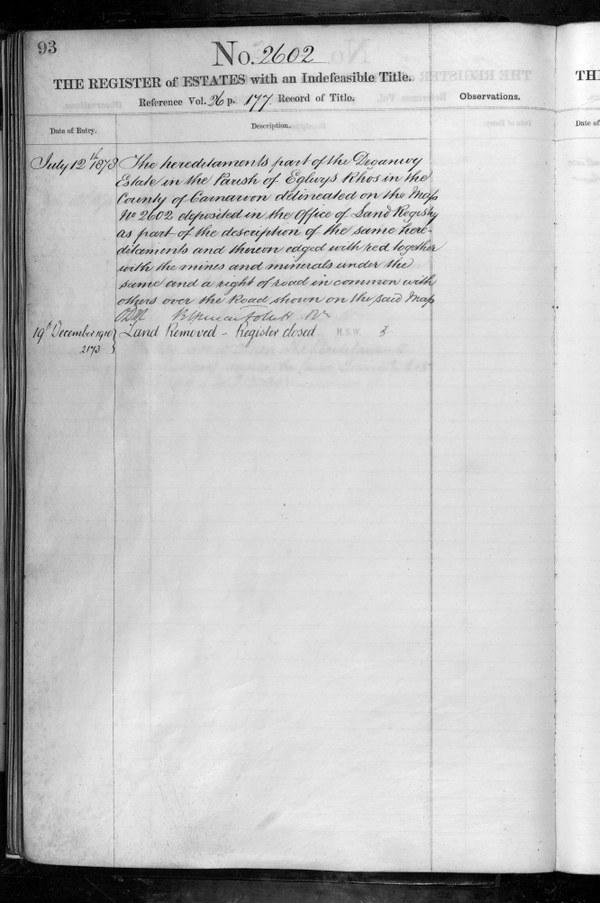 93
No. 2602
THE REGISTER of ESTATES with an Indefeasible Title.
Reference Vol. 26 p. 177 Record of Title.
Observations.
Date of Entry.
Description.
July 12th 1878
The hereditaments part of the Deganwy
Estate in the Parish of Eglwys Rhos in the
County of Carnarvon delineated on the Map
No 2602 deposited in the Office of Land Registry
as part of the description of the same here-
ditaments and thereon edged with red together
with the mines and minerals under the
same and a right of road in common with
others over the Road shown on the said Map
Follett
19th December 1910
Land Removed - Register closed. H.S.W. 3
2173
TH
Date of